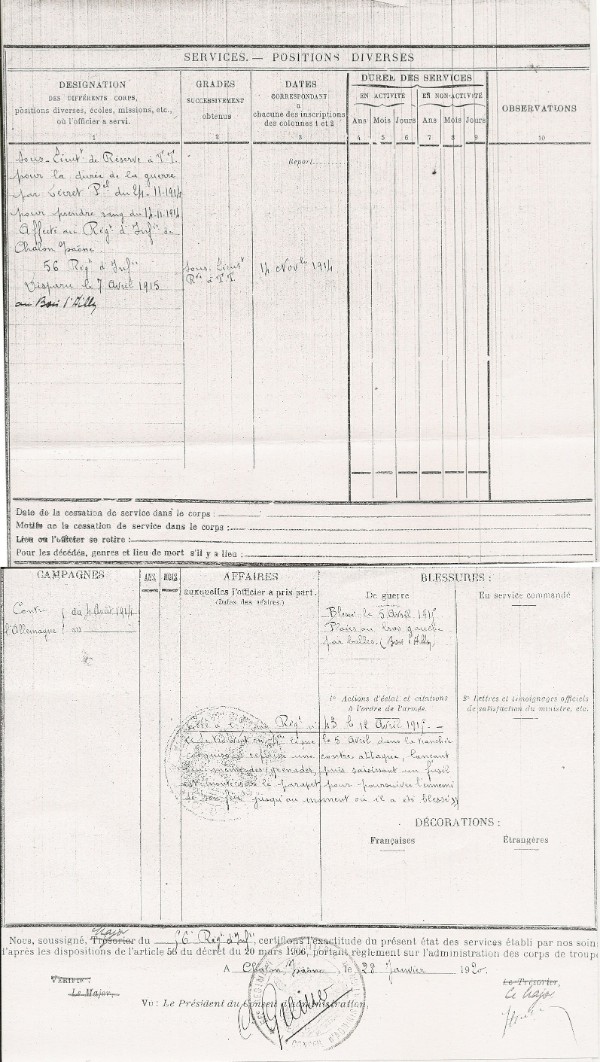 SERVICES. — POSITIONS DIVERSES
DESIGNATION
DES DIFFÉRENTS CORPS,
positions diverses, écoles, missions, etc.,
où l'officier a servi.
1
GRADES
SUCCESSIVEMENT
obtenus
2
DATES
CORRESPONDANT
à
chacune des inscriptions
des colonnes 1 et 2
3
DURÉE DES SERVICES
EN ACTIVITÉ
EN NON-ACTIVITÉ
Ans Mois Jours Ans Mois Jours
4 5 6 7 8 9
OBSERVATIONS
10
Report
Sous-Lieut^t de Réserve à T.T.
pour la durée de la guerre
par Décret P^el du 24-11-1914
pour prendre rang du 14.11.1914
Affecté au Rég^t d'Inf^ie de
Chalon s/Saône
56 Rég^t d'Inf^ie
Sous-Lieut^t
R^ve à T.T.
14 Nov^bre 1914
Disparu le 7 Avril 1915
au Bois d'Ailly
Date de la cessation de service dans le corps :
Motifs de la cessation de service dans le corps :
Lieu où l'officier se retire :
Pour les décédés, genres et lieu de mort s'il y a lieu :
CAMPAGNES
ANS MOIS
Contre
l'Allemagne
du 4 Août 1914
au
AFFAIRES
auxquelles l'officier a pris part.
(Dates des affaires.)
BLESSURES :
De guerre
En service commandé
Blessé le 5 Avril 1915
Plaies au bras gauche
par balles. (Bois d'Ailly)
1° Actions d'éclat et citations
à l'ordre de l'armée.
2° Lettres et témoignages officiels
de satisfaction du ministre, etc.
Rég^t n° 43 le 12 Avril 1915 -
ligne le 5 Avril dans la tranchée
conquise et repoussé une contre attaque, lançant
des grenades, puis saisissant un fusil
est monté sur le parapet pour poursuivre l'ennemi
de son feu jusqu'au moment où il a été blessé »
DÉCORATIONS :
Françaises
Étrangères
Major
Nous, soussigné, Trésorier du 56 Rég^t d'Inf^ie, certifions l'exactitude du présent état des services établi par nos soins
d'après les dispositions de l'article 56 du décret du 20 mars 1906, portant règlement sur l'administration des corps de troupe
A Chalon s/Saône, le 28 Janvier 1920.
VÉRIFIÉ :
Le Major,
Le Trésorier,
Le Major
Vu : Le Président du Conseil d'administration,